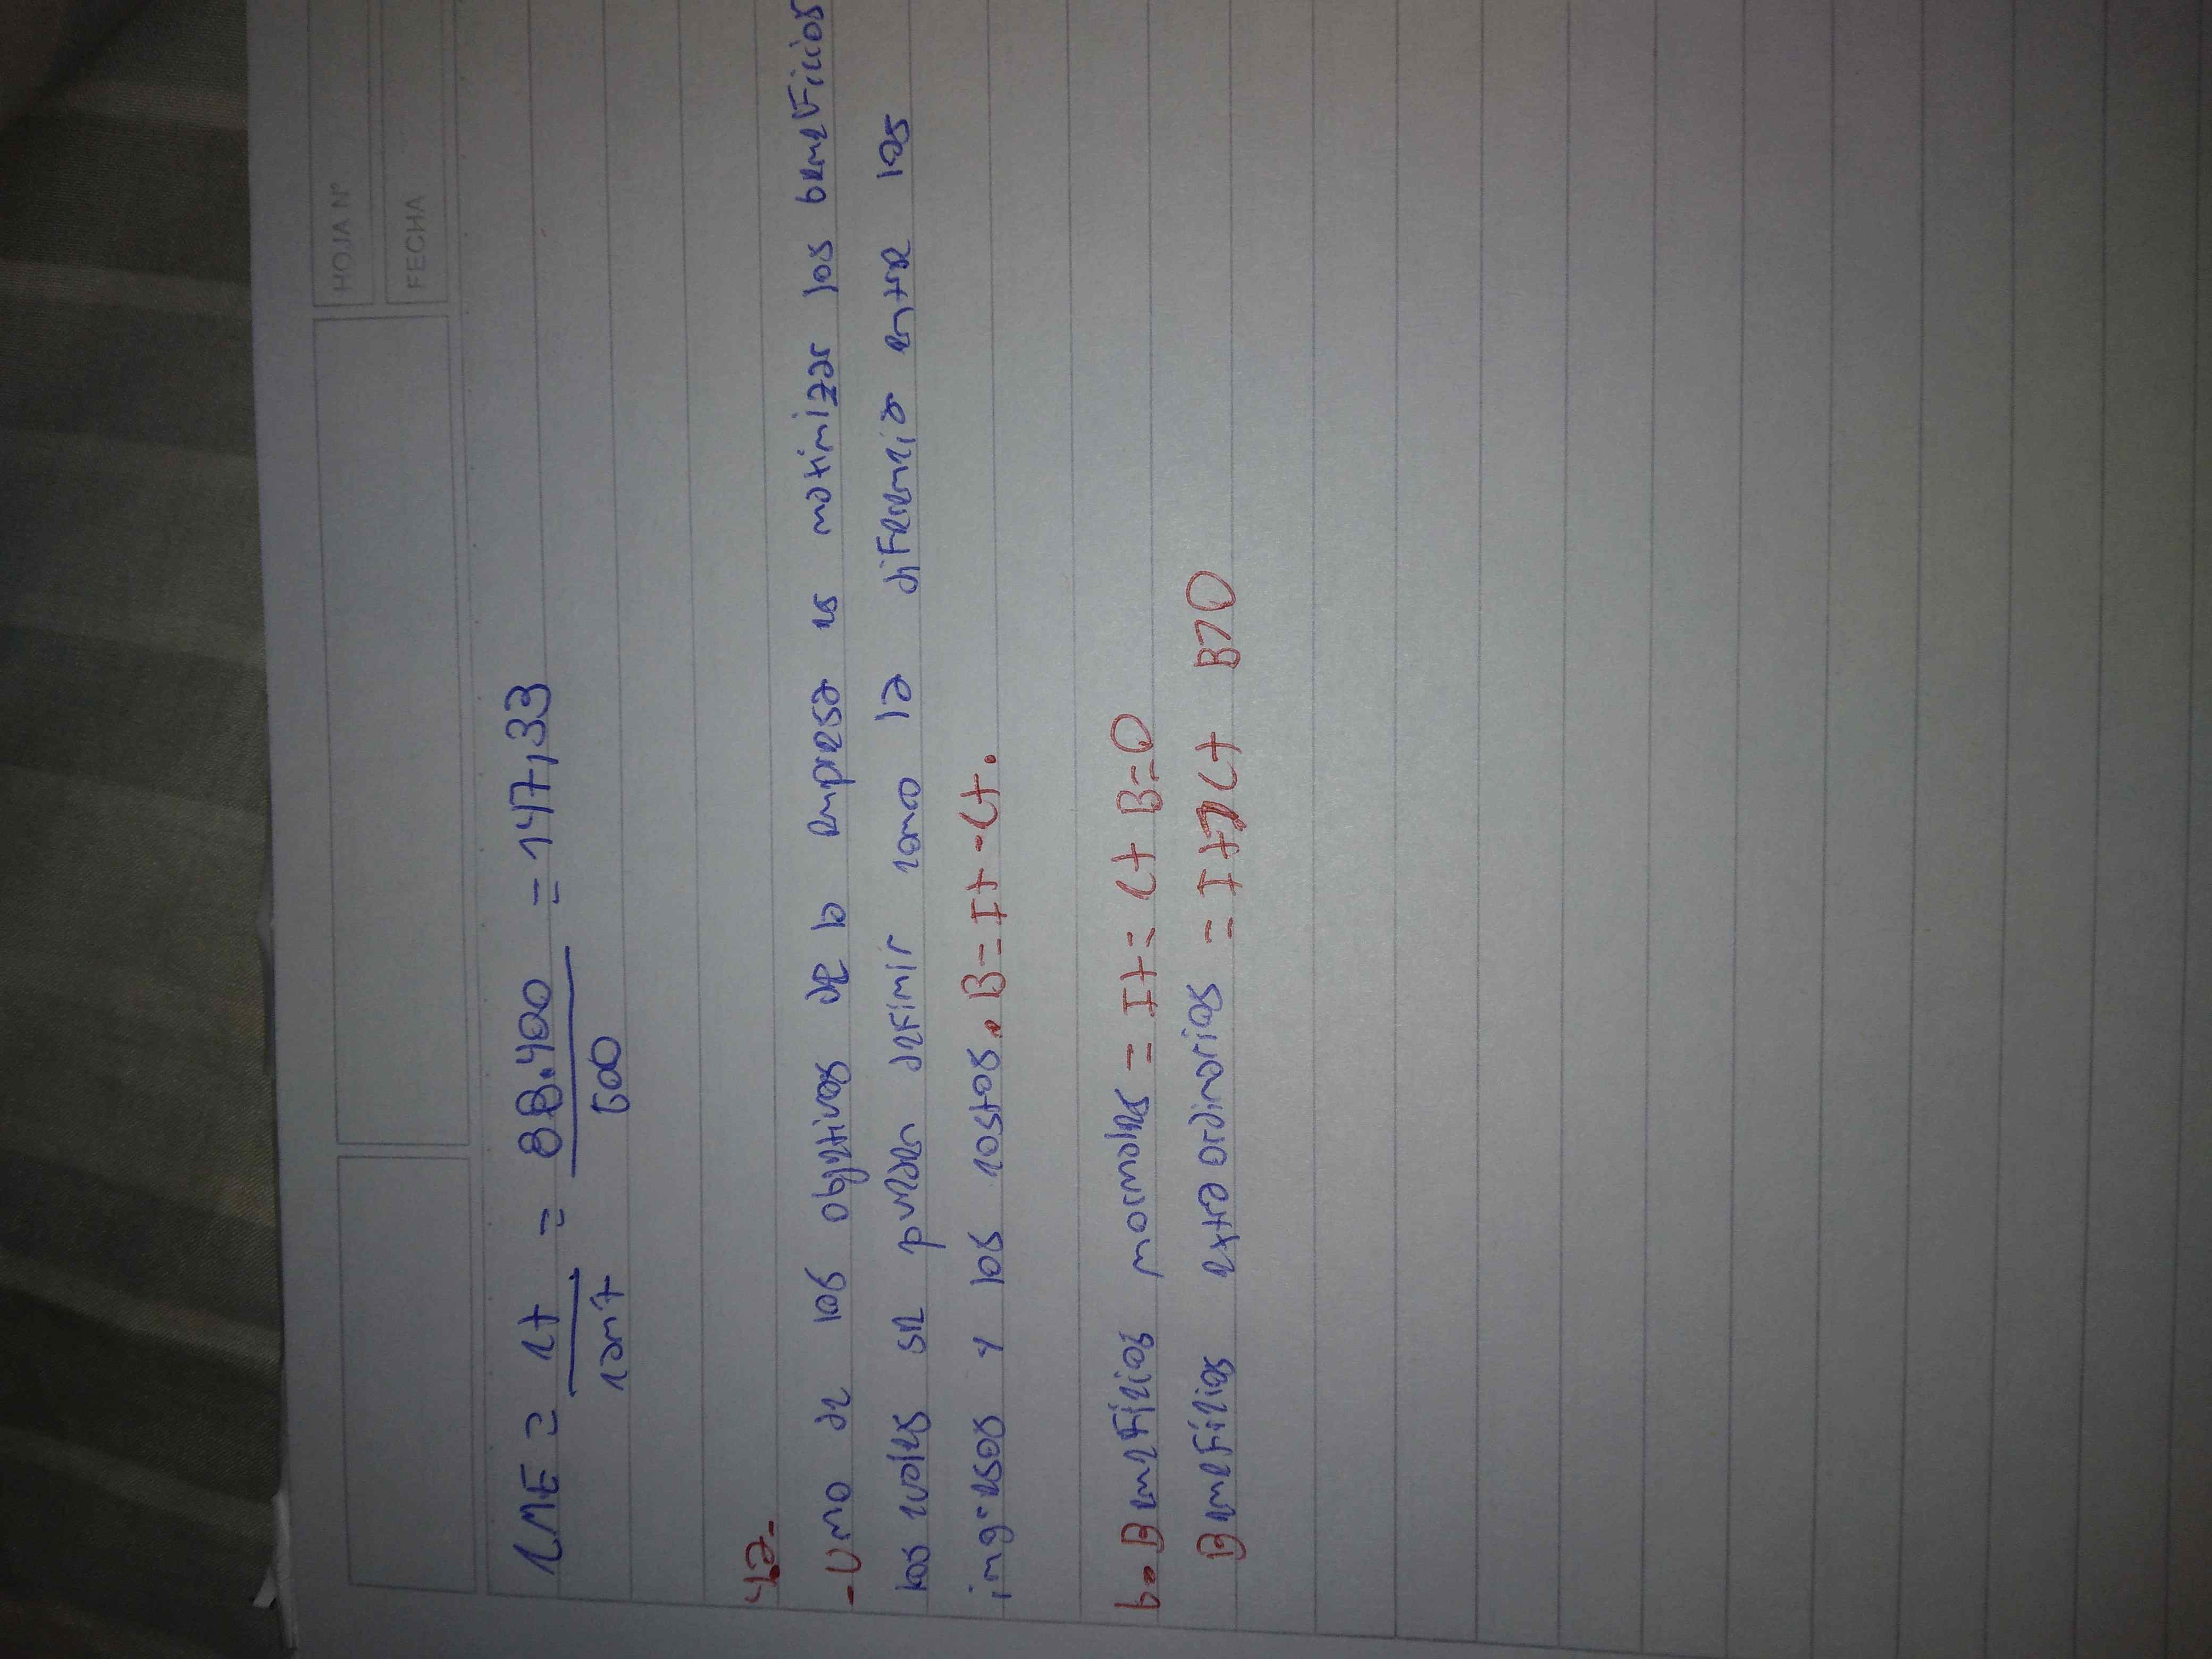 HOJA Nº
FECHA
CME = Ct / Cant = 88.400 / 600 = 147,33
4a-
- Uno de los objetivos de la empresa es maximizar los beneficios
los cuales se pueden definir como la diferencia entre los
ingresos y los costos. B = It - Ct.
b. Beneficios normales = It = Ct B=0
Beneficios extraordinarios = It > Ct B>0